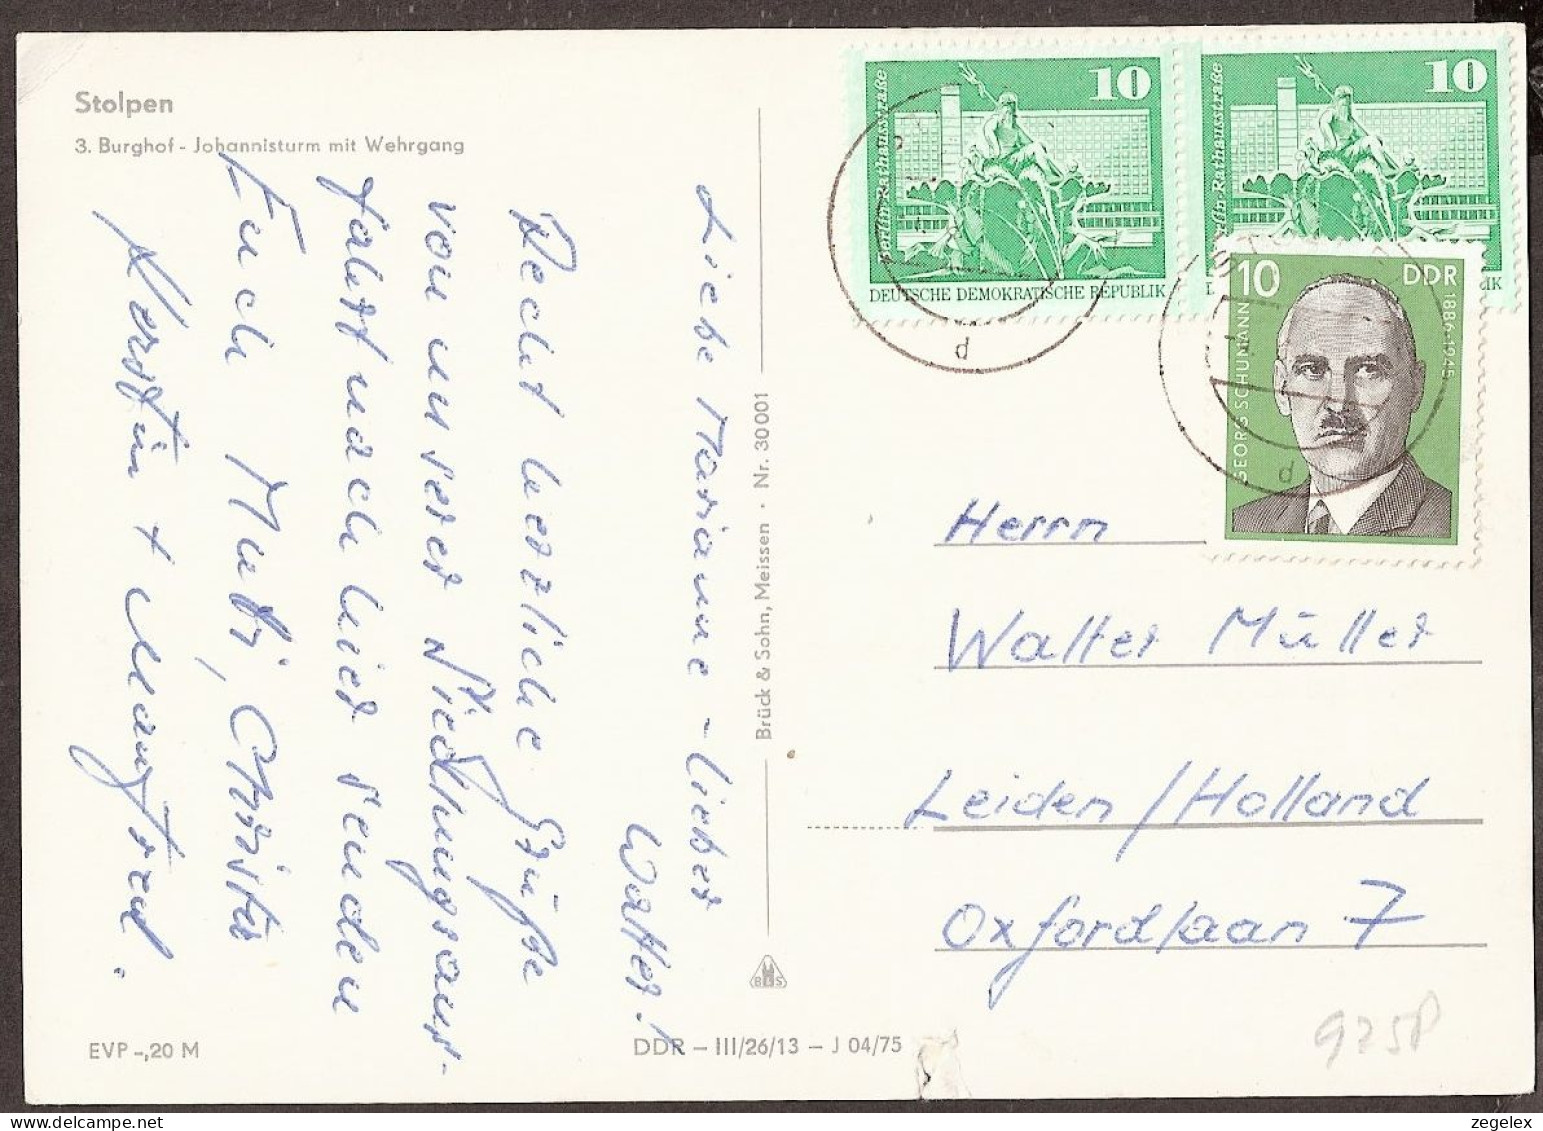 Stolpen
3. Burghof - Johannisturm mit Wehrgang
Liebe Marianne - lieber
Walter!
Recht herzliche Grüße
von unserer Niedlungsaus-
fahrt nach hier senden
Euch Mutti, Christa
Kerstin + Manfred.
EVP -,20 M
DDR - III/26/13 - J 04/75
Brück & Sohn, Meissen · Nr. 30001
BLS
10
Berlin-Rathausstraße
DEUTSCHE DEMOKRATISCHE REPUBLIK
10
Berlin-Rathausstraße
IK
10
DDR
1886-1945
GEORG SCHUMANN
d
d
Herrn
Walter Müller
Leiden / Holland
Oxfordlaan 7
925P
zegelex